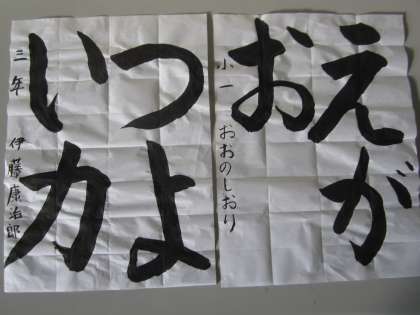 えが
お
小一 おおのしおり
つよ
い力
三年 伊藤康治郎